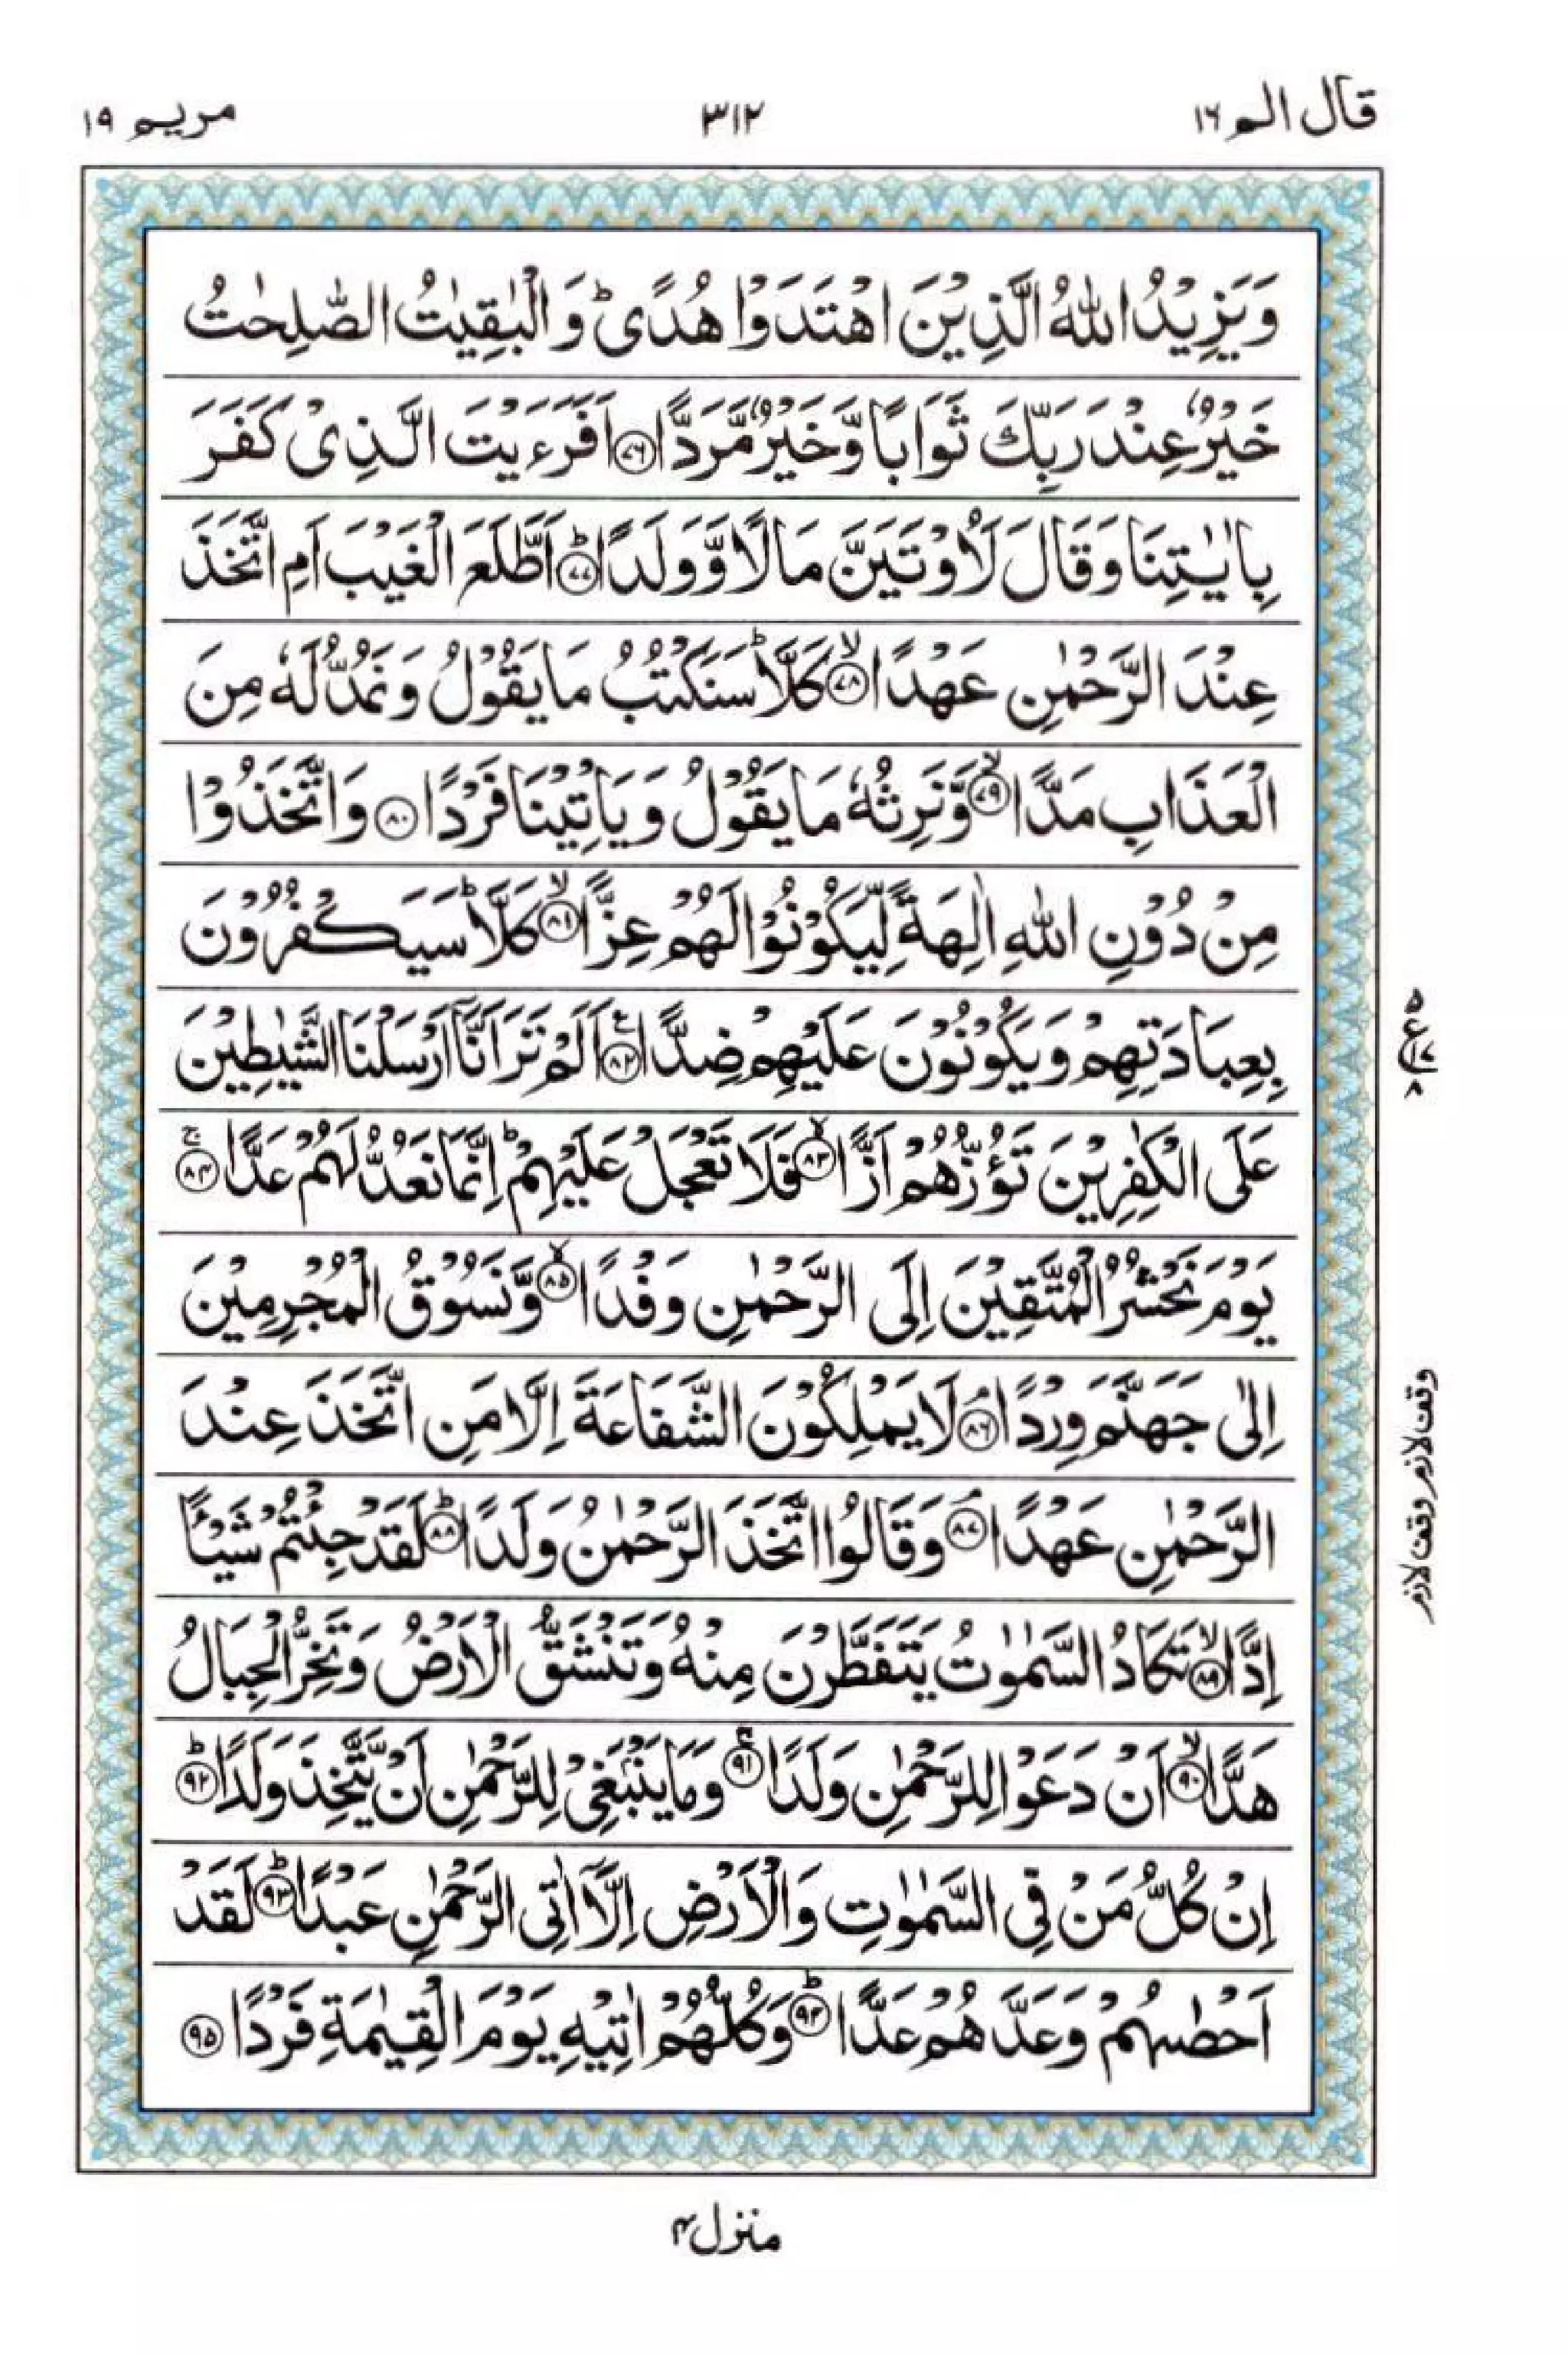 قال الم ١٦
٣١٢
مريم ١٩
وَيَزِيْدُ اللّٰهُ الَّذِيْنَ اهْتَدَوْا هُدًىؕ وَالْبٰقِيٰتُ الصّٰلِحٰتُ
خَيْرٌ عِنْدَ رَبِّكَ ثَوَابًا وَّخَيْرٌ مَّرَدًّا ﴿۷۶﴾ اَفَرَءَيْتَ الَّذِىْ كَفَرَ
بِاٰيٰتِنَا وَقَالَ لَاُوْتَيَنَّ مَالًا وَّوَلَدًا ؕ﴿۷۷﴾ اَطَّلَعَ الْغَيْبَ اَمِ اتَّخَذَ
عِنْدَ الرَّحْمٰنِ عَهْدًا ۙ﴿۷۸﴾ كَلَّاؕ سَنَكْتُبُ مَا يَقُوْلُ وَنَمُدُّ لَهٗ مِنَ
الْعَذَابِ مَدًّا ۙ﴿۷۹﴾ وَّنَرِثُهٗ مَا يَقُوْلُ وَيَاْتِيْنَا فَرْدًا ﴿۸۰﴾ وَاتَّخَذُوْا
مِنْ دُوْنِ اللّٰهِ اٰلِهَةً لِّيَكُوْنُوْا لَهُمْ عِزًّا ۙ﴿۸۱﴾ كَلَّاؕ سَيَكْفُرُوْنَ
بِعِبَادَتِهِمْ وَيَكُوْنُوْنَ عَلَيْهِمْ ضِدًّا ﴿۸۲﴾ اَلَمْ تَرَ اَنَّاۤ اَرْسَلْنَا الشَّيٰطِيْنَ
عَلَى الْكٰفِرِيْنَ تَؤُزُّهُمْ اَزًّا ۙ﴿۸۳﴾ فَلَا تَعْجَلْ عَلَيْهِمْؕ اِنَّمَا نَعُدُّ لَهُمْ عَدًّا ۚ﴿۸۴﴾
يَوْمَ نَحْشُرُ الْمُتَّقِيْنَ اِلَى الرَّحْمٰنِ وَفْدًا ۙ﴿۸۵﴾ وَّنَسُوْقُ الْمُجْرِمِيْنَ
اِلٰى جَهَنَّمَ وِرْدًا ۘ﴿۸۶﴾ لَا يَمْلِكُوْنَ الشَّفَاعَةَ اِلَّا مَنِ اتَّخَذَ عِنْدَ
الرَّحْمٰنِ عَهْدًا ۘ﴿۸۷﴾ وَقَالُوا اتَّخَذَ الرَّحْمٰنُ وَلَدًا ؕ﴿۸۸﴾ لَقَدْ جِئْتُمْ شَيْـًٔا
اِدًّا ۙ﴿۸۹﴾ تَكَادُ السَّمٰوٰتُ يَتَفَطَّرْنَ مِنْهُ وَتَنْشَقُّ الْاَرْضُ وَتَخِرُّ الْجِبَالُ
هَدًّا ۙ﴿۹۰﴾ اَنْ دَعَوْا لِلرَّحْمٰنِ وَلَدًا ۚ﴿۹۱﴾ وَمَا يَنْۢبَغِىْ لِلرَّحْمٰنِ اَنْ يَّتَّخِذَ وَلَدًا ؕ﴿۹۲﴾
اِنْ كُلُّ مَنْ فِى السَّمٰوٰتِ وَالْاَرْضِ اِلَّاۤ اٰتِى الرَّحْمٰنِ عَبْدًا ؕ﴿۹۳﴾ لَقَدْ
اَحْصٰىهُمْ وَعَدَّهُمْ عَدًّا ؕ﴿۹۴﴾ وَكُلُّهُمْ اٰتِيْهِ يَوْمَ الْقِيٰمَةِ فَرْدًا ﴿۹۵﴾
۵ ع ۱۷ ۸
وقف لازم وقف لازم
منزل ۴